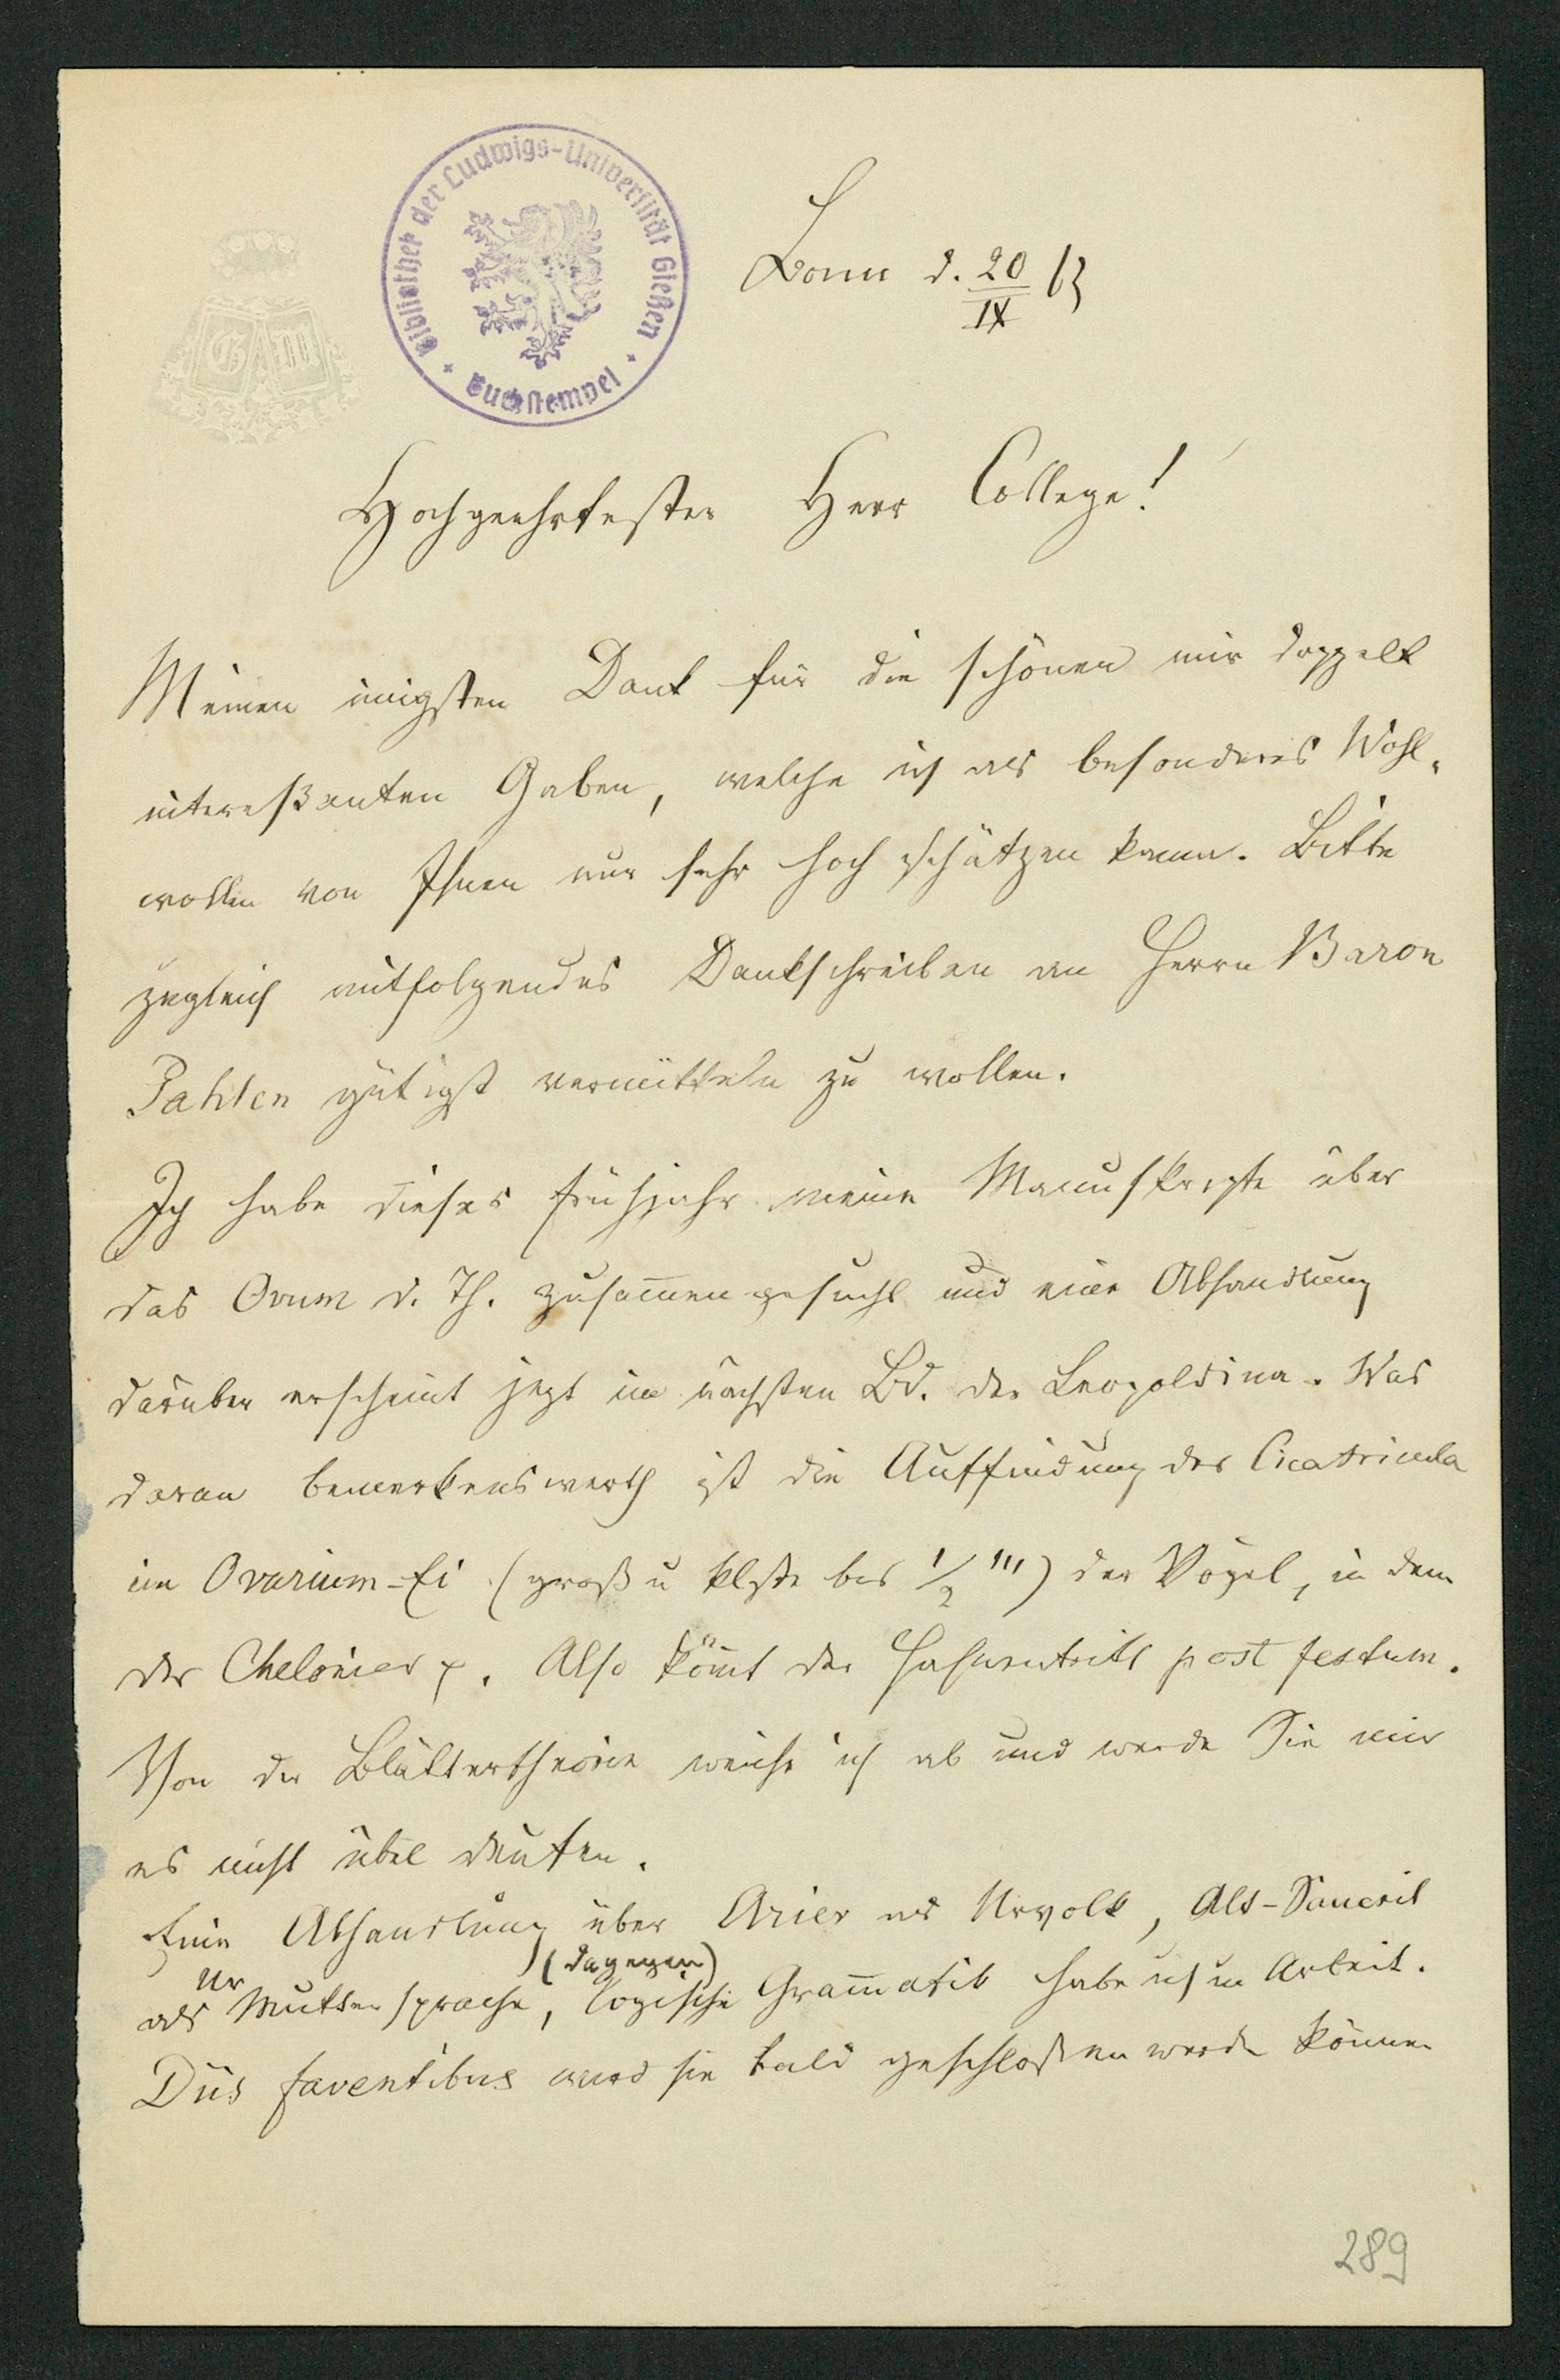 Bibliothek der Ludwigs-Universität Gießen
Buchstempel
GM
Bonn d. 20/IX 63
Hochgeehrtester Herr College!
Meinen innigsten Dank für die schönen mir doppelt
intereßanten Gaben, welche ich als besonderes Wohl-
wollen von Ihnen nur sehr hoch schätzen kann. Bitte
zugleich mitfolgendes Dankschreiben an Herrn Baron
Pahlen gütigst vermitteln zu wollen.
Ich habe dieses Frühjahr meine Manuskripte über
das Ovum d. Th. zusammengesucht und eine Abhandlung
darüber erscheint jezt im nächsten Bd. der Leopoldina. Was
daran bemerkenswerth ist die Auffindung der Cicatricula
im Ovarium-Ei (groß u klste bis 1/2 ''') der Vögel, in dem
der Chelonier. Also kömt der Hahnentritt post festum.
Von der Blättertheorie weiche ich ab und werde Sie mir
es nicht übel deuten.
Eine Abhandlung über Arier als Urvolk, Alt-Sanscrit
als Ur Muttersprache, (dagegen) logische Grammatik habe ich in Arbeit.
Diis faventibus wird sie bald geschlossen werden können
289